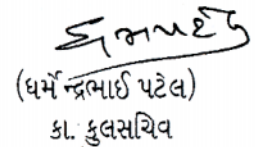 (ધર્મેન્દ્રભાઈ પટેલ)
કા. કુલસચિવ